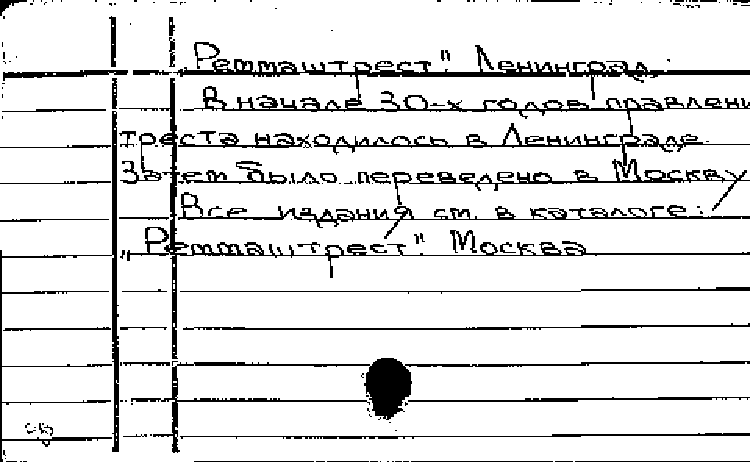 „Ремmaштрест". Ленинград.
В начале 30-х годов правлени
треста находилось в Ленинграде
Затем было переведено в Москву
Все издания см. в каталоге:
„Реммаштрест". Москва